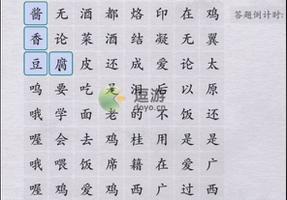 酱无酒都烙印在鸡
答题倒计时:
香论菜酒结凝无翼
豆腐皮还成爱论太
呜要吃是泪后以原
哦学面老的不饭还
喔会去鸡桂用是是
哦喂饭席籍在爱广
喔鸡爱鸡西广过西
逗游
doyo.cn